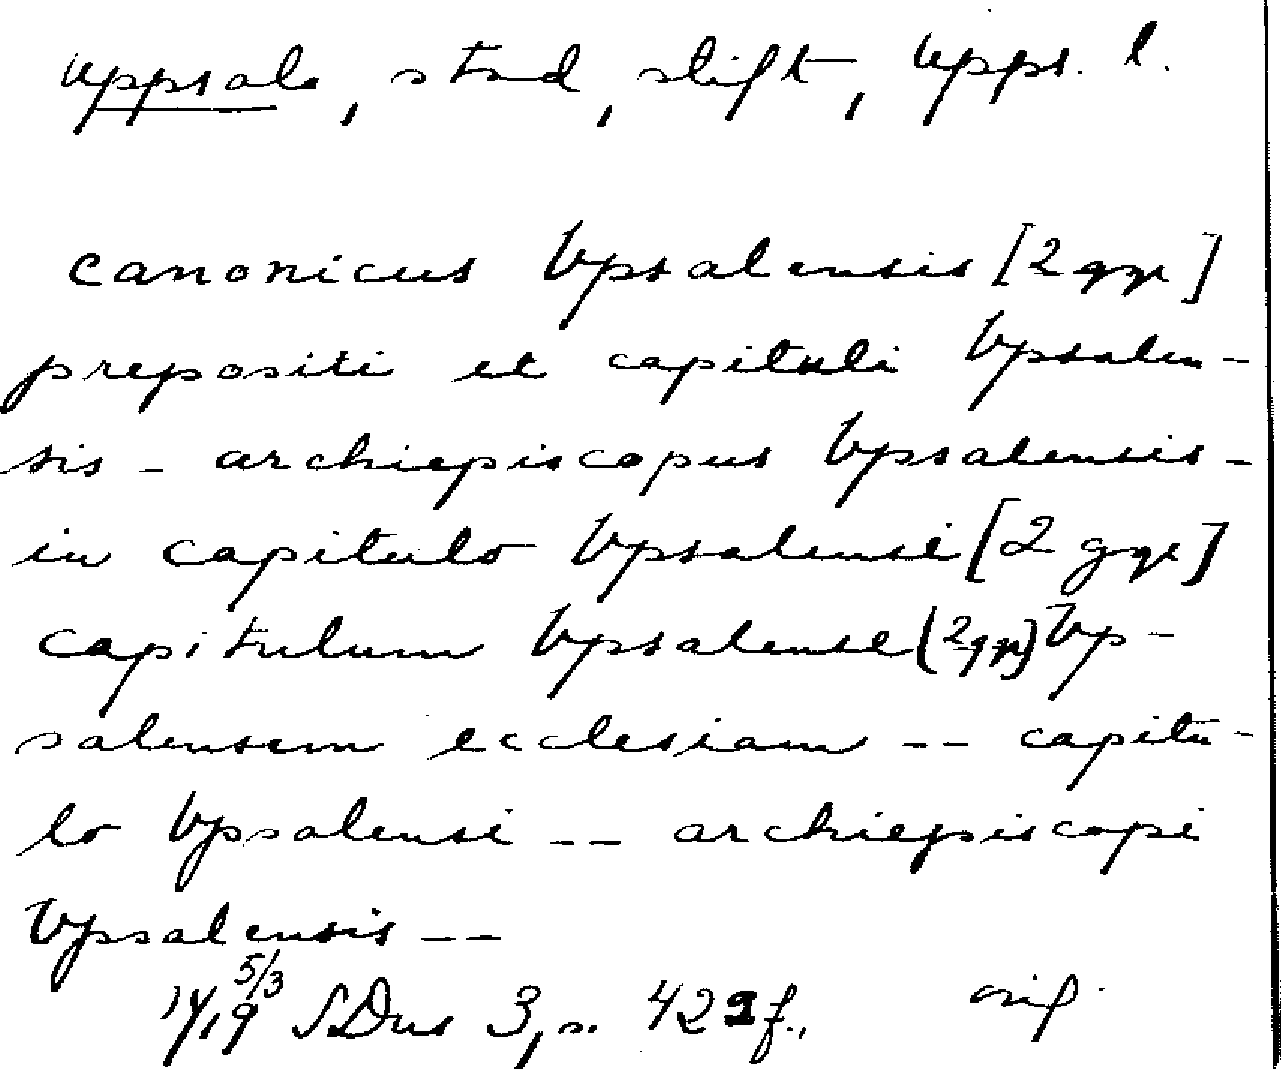 Uppsala, stad, stift, Upps. l.
canonicus Vpsalensis [2 ggr]
prepositi et capituli Vpsalen-
sis - archiepiscopus Vpsalensis -
in capitulo Vpsalensi [2 ggr]
capitulum Vpsalense [2 ggr] Vp-
salensem ecclesiam -- capitu-
lo Vpsalensi -- archiepiscopi
Vpsalensis --
1419 5/3 SDns 3, s. 422 f., orig.